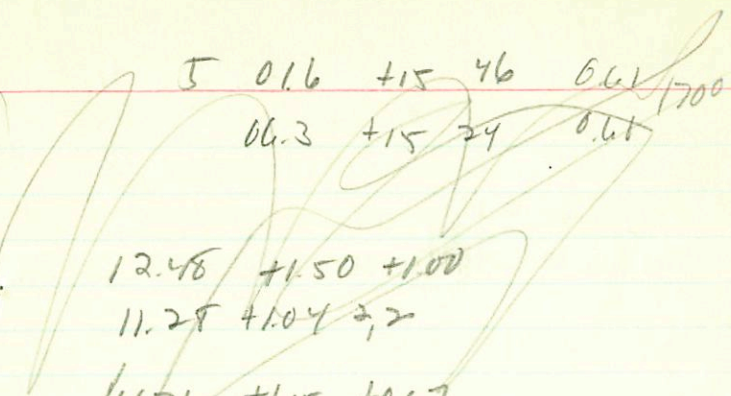 5 01.6 +15 46 0.61 1700
06.3 +15 24 0.61
12.48 +1.50 +1.00
11.28 +1.04 2,2